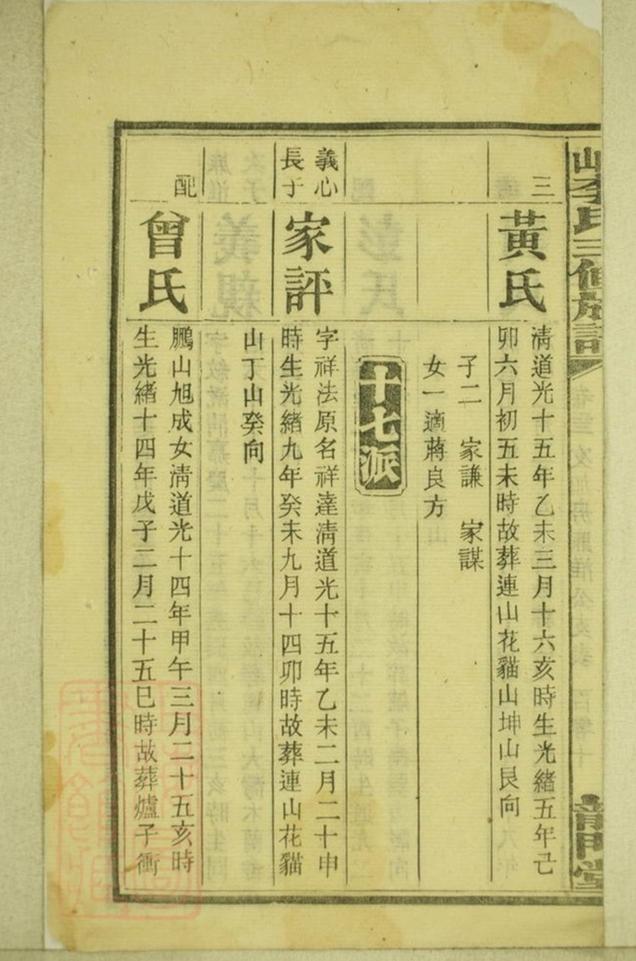 李氏三修族譜
三
黃氏
清道光十五年乙未三月十六亥時生光緒五年己
卯六月初五未時故葬連山花貓山坤山艮向
子二 家謙 家謀
女一適蔣良方
十七派
義心
長子
家評
字祥法原名祥達清道光十五年乙未二月二十申
時生光緒九年癸未九月十四卯時故葬連山花貓
山丁山癸向
配
曾氏
鵬山旭成女清道光十四年甲午三月二十五亥時
生光緒十四年戊子二月二十五巳時故葬爐子衝